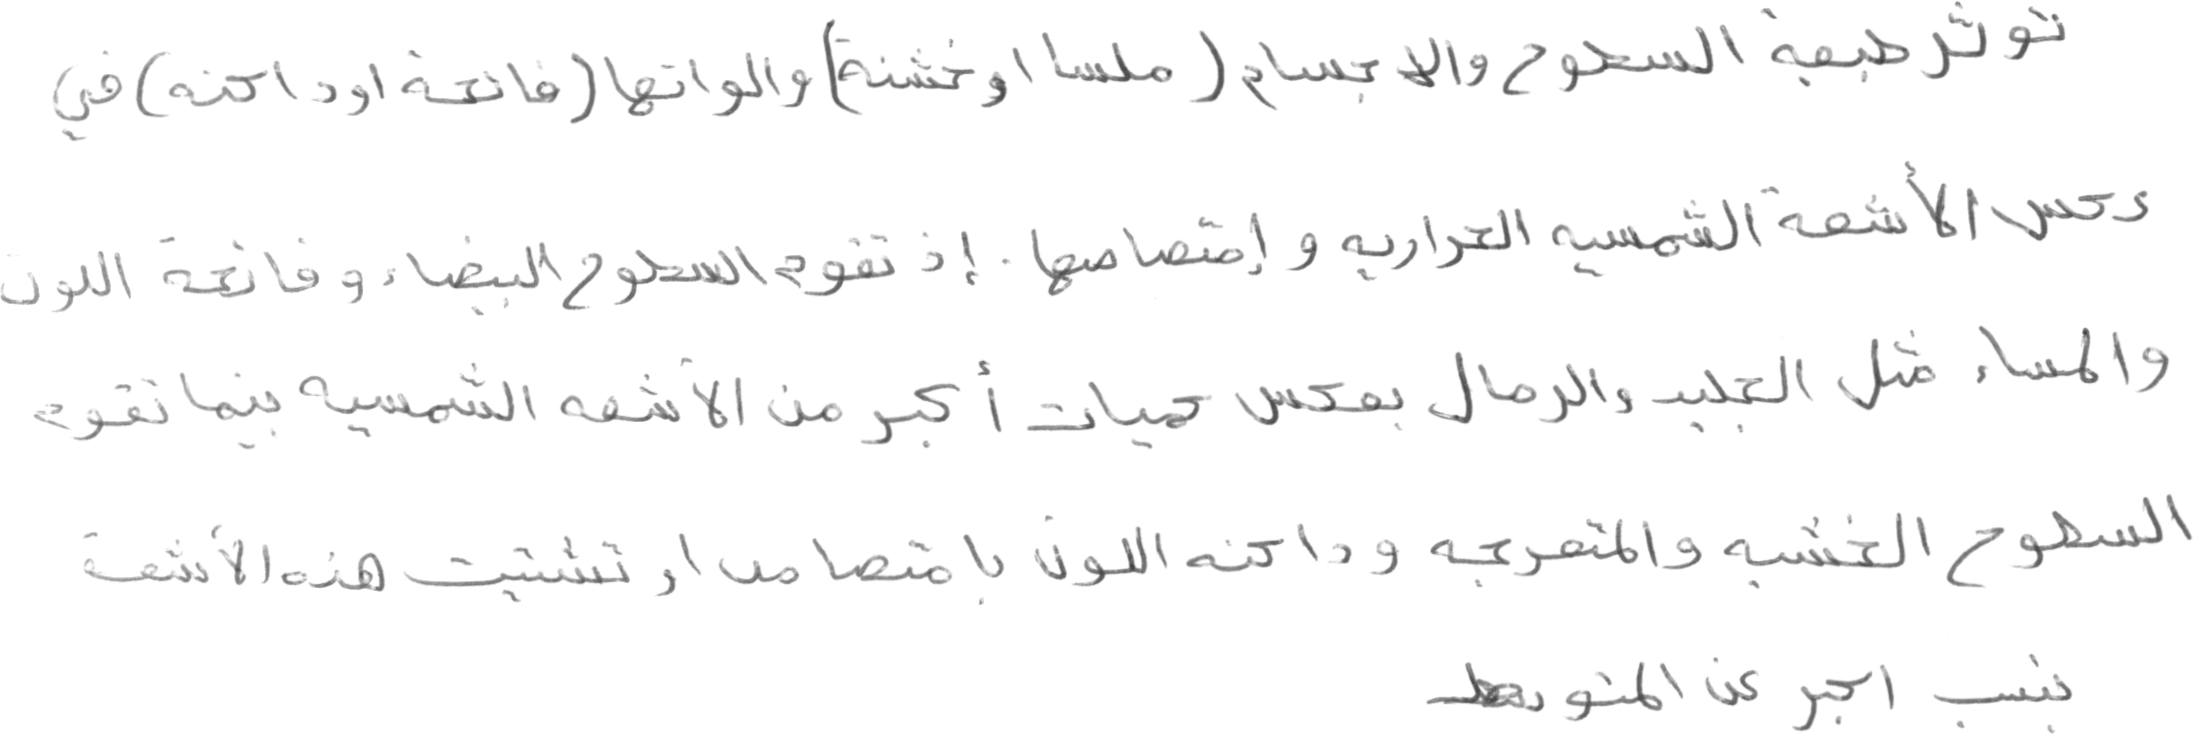 توثر طبيعة السطوح والاجسام (ملسا اوخشنة) والوانها (فاتحة اوداكنه) في
عكس الأشعة الشمسيه الحراريه وإمتصاصها. إذ تقوم السطوح البيضاء وفاتحة اللون
والمساء مثل الجليد والرمال بعكس كميات أكبر من الأشعه الشمسيه بينما تقوم
السطوح الخشبه والمتعرجه وداكنه اللون بامتصاص او تشتيت هذه الأشعة
بنسب اكبر عن المتوسط